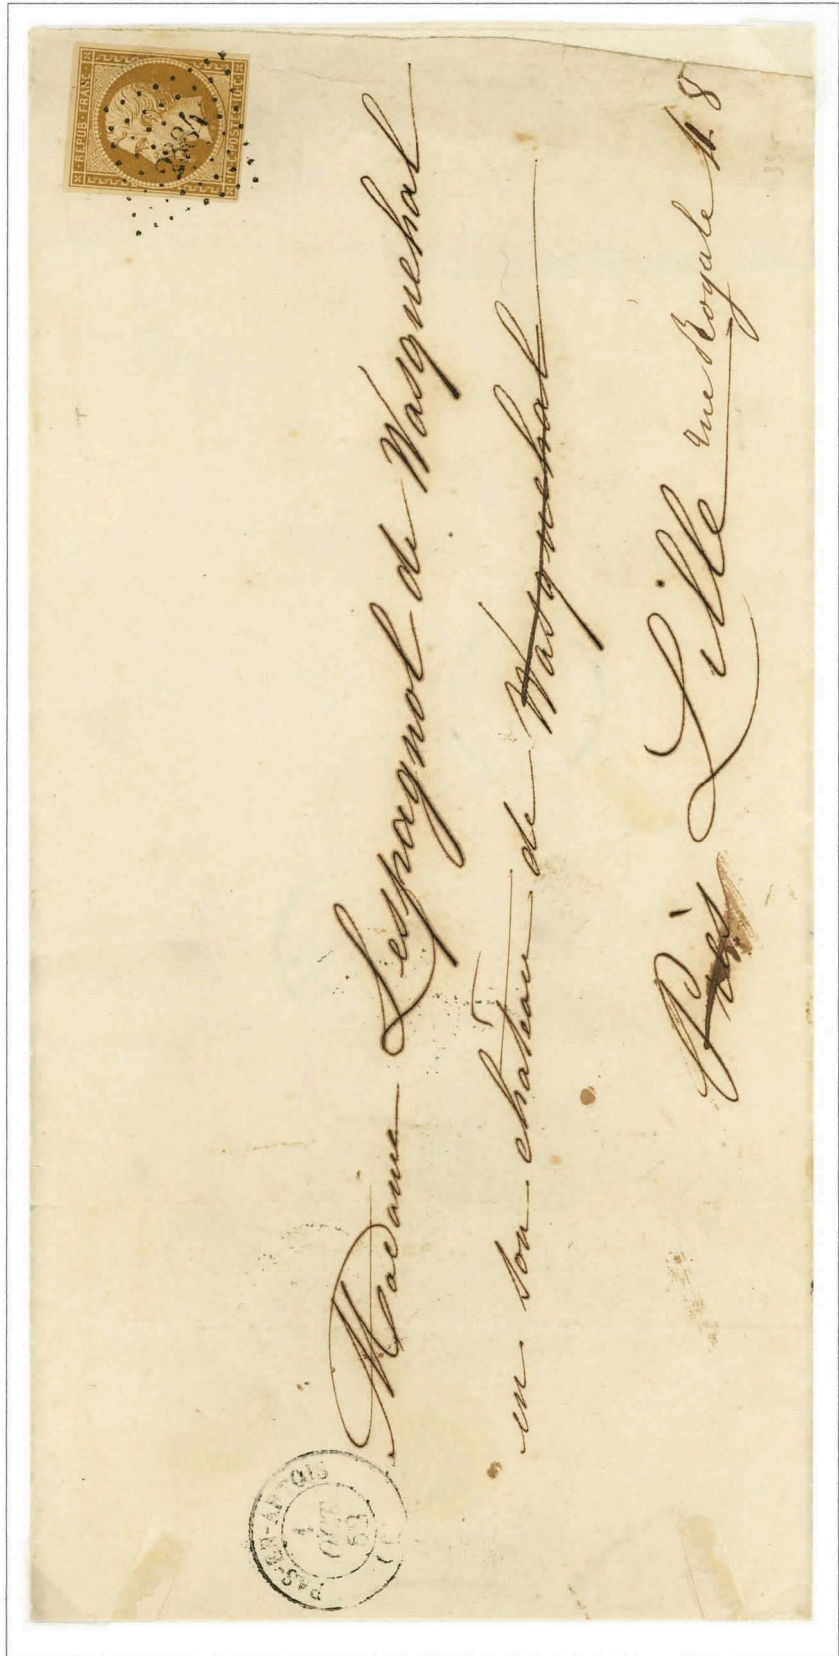 REPUB · FRANC ·
10 · C · POSTES · 10 · C
2384
Madame Lespagnol de Wasquehal
en son château de Wasquehal
Près Lille rue Royale n. 8
PAS-EN-ARTOIS
1
OCT
53